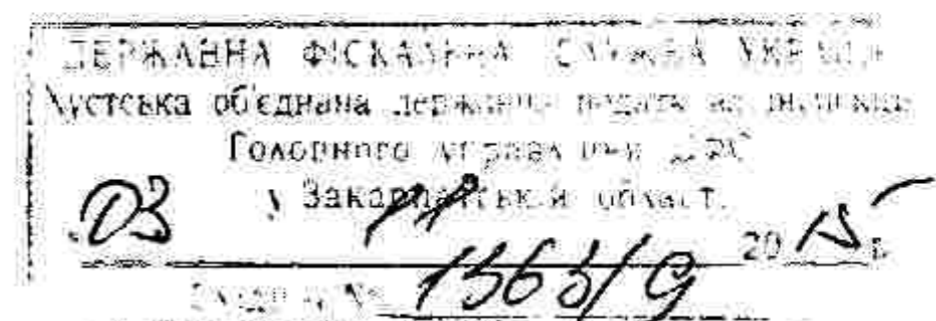 ДЕРЖАВНА ФІСКАЛЬНА СЛУЖБА УКРАЇНИ
Хустська об'єднана державна податкова інспекція
Головного управління ДФС
у Закарпатській області
03 11 2015 р.
Вхідний № 1363/9